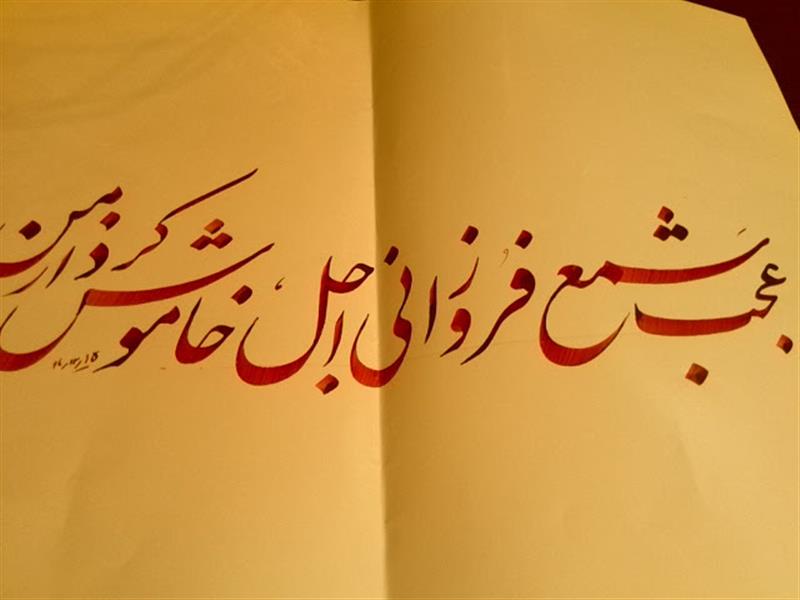 عجب شمع فروزانی اجل خاموش کرد از من